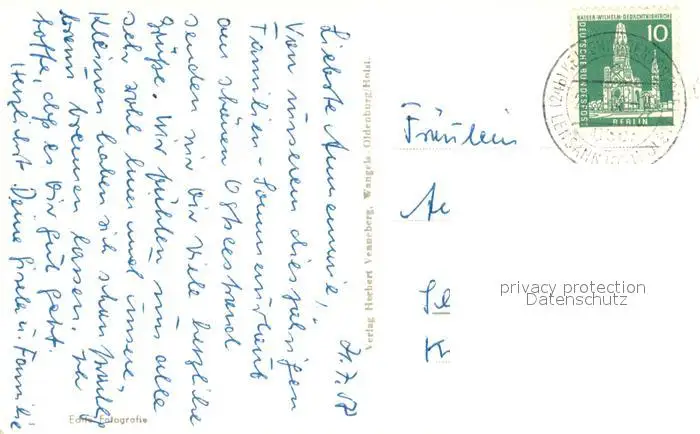 Liebste Annemarie,
Von unserem diesjährigen
Familien-Sommerurlaub
am schönen Ostseestrand
senden wir Dir viele herzliche
Grüße. Wir fühlen uns alle
sehr wohl hier und unsere
Kleinen haben sich schon prächtig
braun brennen lassen. Ich
hoffe, daß es Dir gut geht.
Herzlichst Deine Gisela u. Familie
Verlag Herbert Venneberg, Wangels, Oldenburg/Holst.
Echte Fotografie
KAISER-WILHELM-GEDÄCHTNISKIRCHE
DEUTSCHE BUNDESPOST
10
BERLIN
Fräulein
privacy protection
Datenschutz